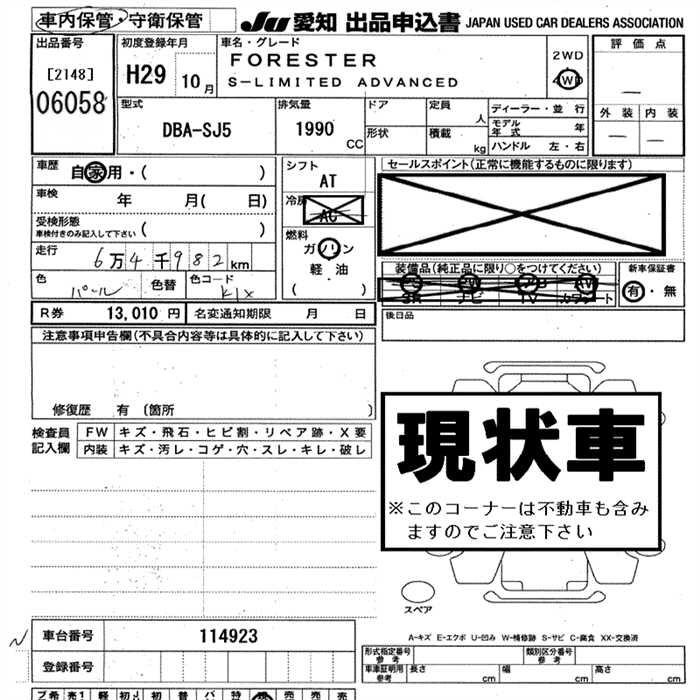 車内保管・守衛保管 JU 愛知 出品申込書 JAPAN USED CAR DEALERS ASSOCIATION
出品番号
[2148]
06058
初度登録年月
H29 10月
車名・グレード
FORESTER
S-LIMITED ADVANCED
2WD
4WD
評価点
外装 内装
型式
DBA-SJ5
排気量
1990 CC
ドア
形状
定員 人
積載 kg
ディーラー・並行
モデル年式 年
ハンドル 左・右
車歴
自家用・( )
車検 年 月( 日)
受検形態
車検付きのみ記入して下さい ( )
走行
6万4千982km
色 パール 色替 色コード K1X
シフト
AT
冷房
AC
燃料
ガソリン
軽油
( )
セールスポイント(正常に機能するものに限ります)
装備品(純正品に限り○をつけてください)
SR ナビ TV カワシート
新車保証書
有・無
R券 13,010円 名変通知期限 月 日
後日品
注意事項申告欄(不具合内容等は具体的に記入して下さい)
修復歴 有 〔箇所 〕
検査員記入欄
FW キズ・飛石・ヒビ割・リペア跡・X要
内装 キズ・汚レ・コゲ・穴・スレ・キレ・破レ
現状車
※このコーナーは不動車も含み
ますのでご注意下さい
スペア
A-キズ E-エクボ U-凹み W-補修跡 S-サビ C-腐食 XX-交換済
車台番号 114923
登録番号
形式指定番号 参考
類別区分番号 参考
車庫証明用 参考 長さ cm 幅 cm 高さ cm